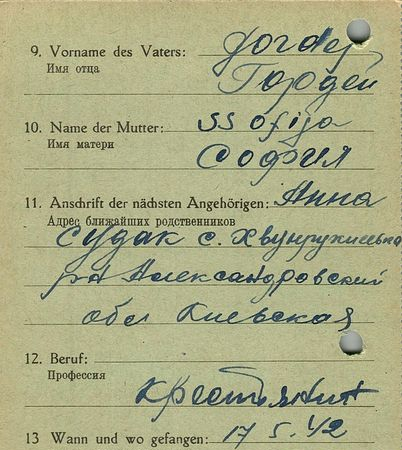 9. Vorname des Vaters:
Имя отца
Гордей
10. Name der Mutter: SSofija
Имя матери
София
11. Anschrift der nächsten Angehörigen: Анна
Адрес ближайших родственников
Судак с.
р-н Александровский
обл Киевская
12. Beruf:
Профессия
Крестянин
13 Wann und wo gefangen: 17 5. 42